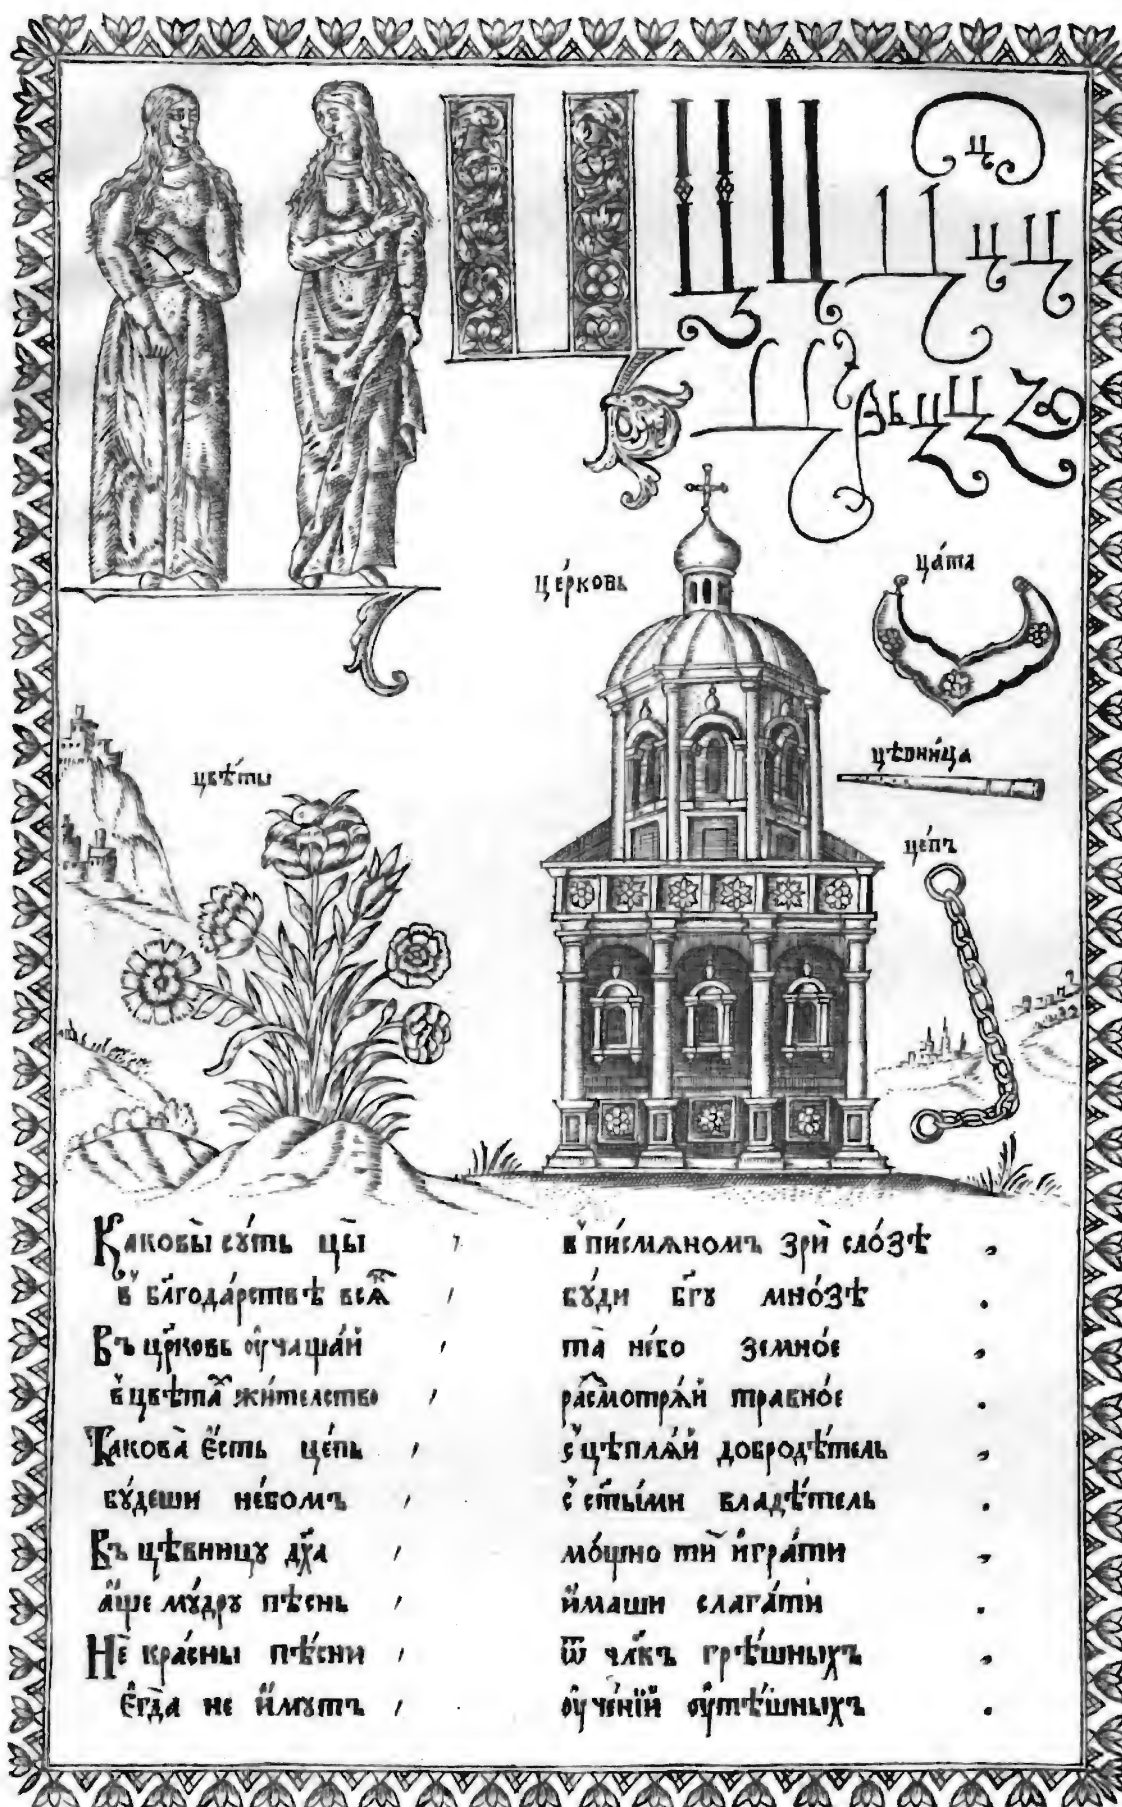 ц
це́рковь
ца́та
цвѣ́ты
цѣвни́ца
це́пъ
Каковы̀ су́ть цы̀ , в̾ пи́смѧномъ зрѝ сло́зѣ ,
в̾ бл҃года́рствѣ всѧ̑к бу́ди бг҃у мно́зѣ .
Въ цр҃ковь ѹ҆чаща́й , та̀ не́бо земно́е ,
в̾ цвѣта̑х жи́телство , расмотрѧ́й травно́е .
Какова̀ е҆́сть це́пь , с̾цѣплѧ́й добродѣ́тель ,
бу́деши не́бомъ , с̾ ст҃ы́ми владѣ́тель .
Въ цѣвницу дх҃а , мо́щно тѝ и҆гра́ти ,
а҆́ще мѹ́дру пѣснь , и҆́маши слага́ти .
Нѐ кра́сны пѣ́сни , ѿ чл҃къ грѣ́шныхъ ,
Е҆гда̀ не и҆́мутъ , ѹ҆че́нїй ѹ҆тѣ́шныхъ .